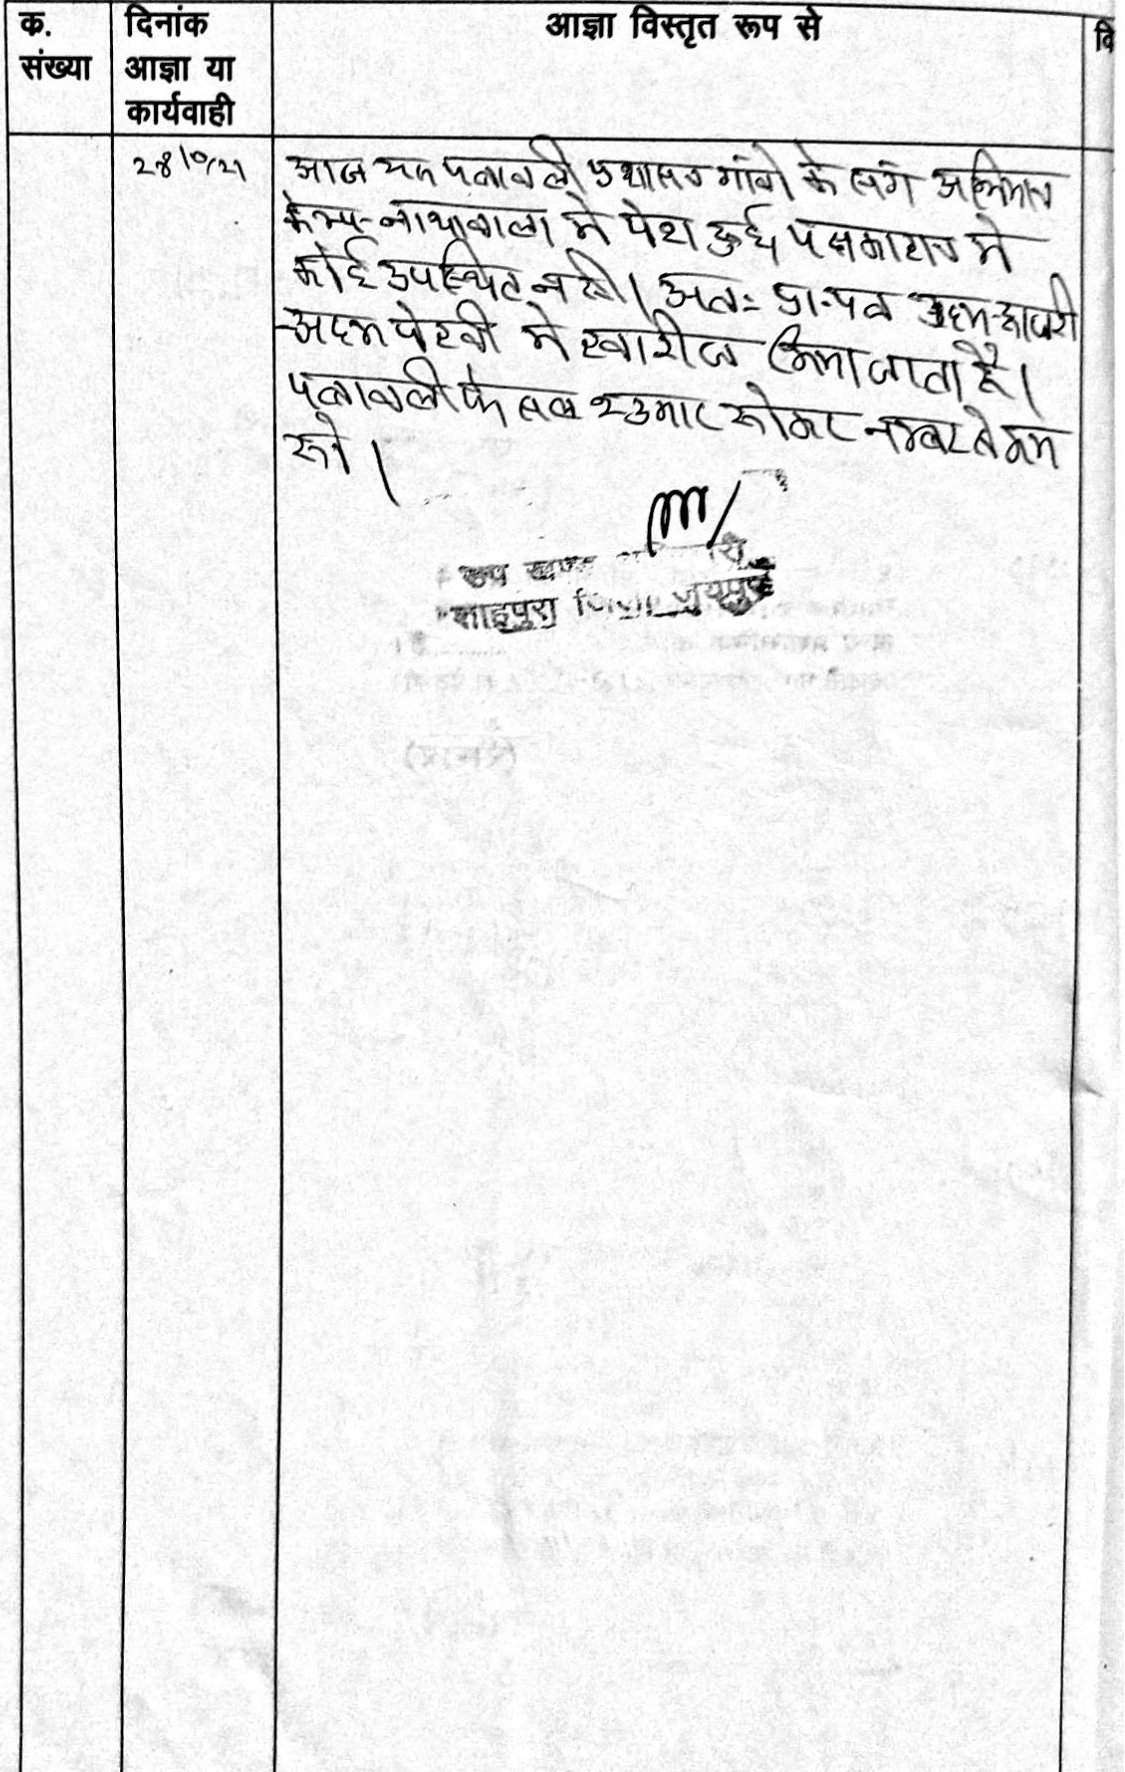 क.
संख्या
दिनांक
आज्ञा या
कार्यवाही
आज्ञा विस्तृत रूप से
वि
28/10/21
आज यह पत्रावली प्रशासन गांवो के संग अभियान
केम्प-नाथावाला मे पेश हुई पक्षकारान मे
कोई उपस्थित नही। अतः प्रा.पत्र अदम-हाजरी
-अदम पेरवी मे खारीज किया जाता है।
पत्रावली फेसल शुमार होकर नम्बर से कम
हो।
उप खण्ड
शाहपुरा जिला जयपुर